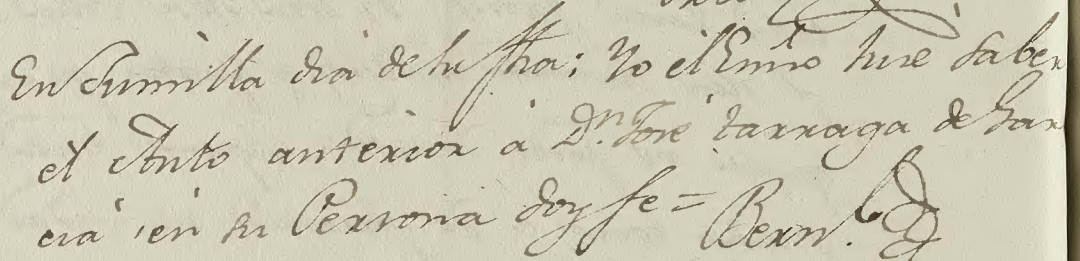 En Jumilla dia de su fha; Yo el Essno hice saber
el Auto anterior à Dn. José tarraga de Gar
cia en su Persona doy fe = Bern.